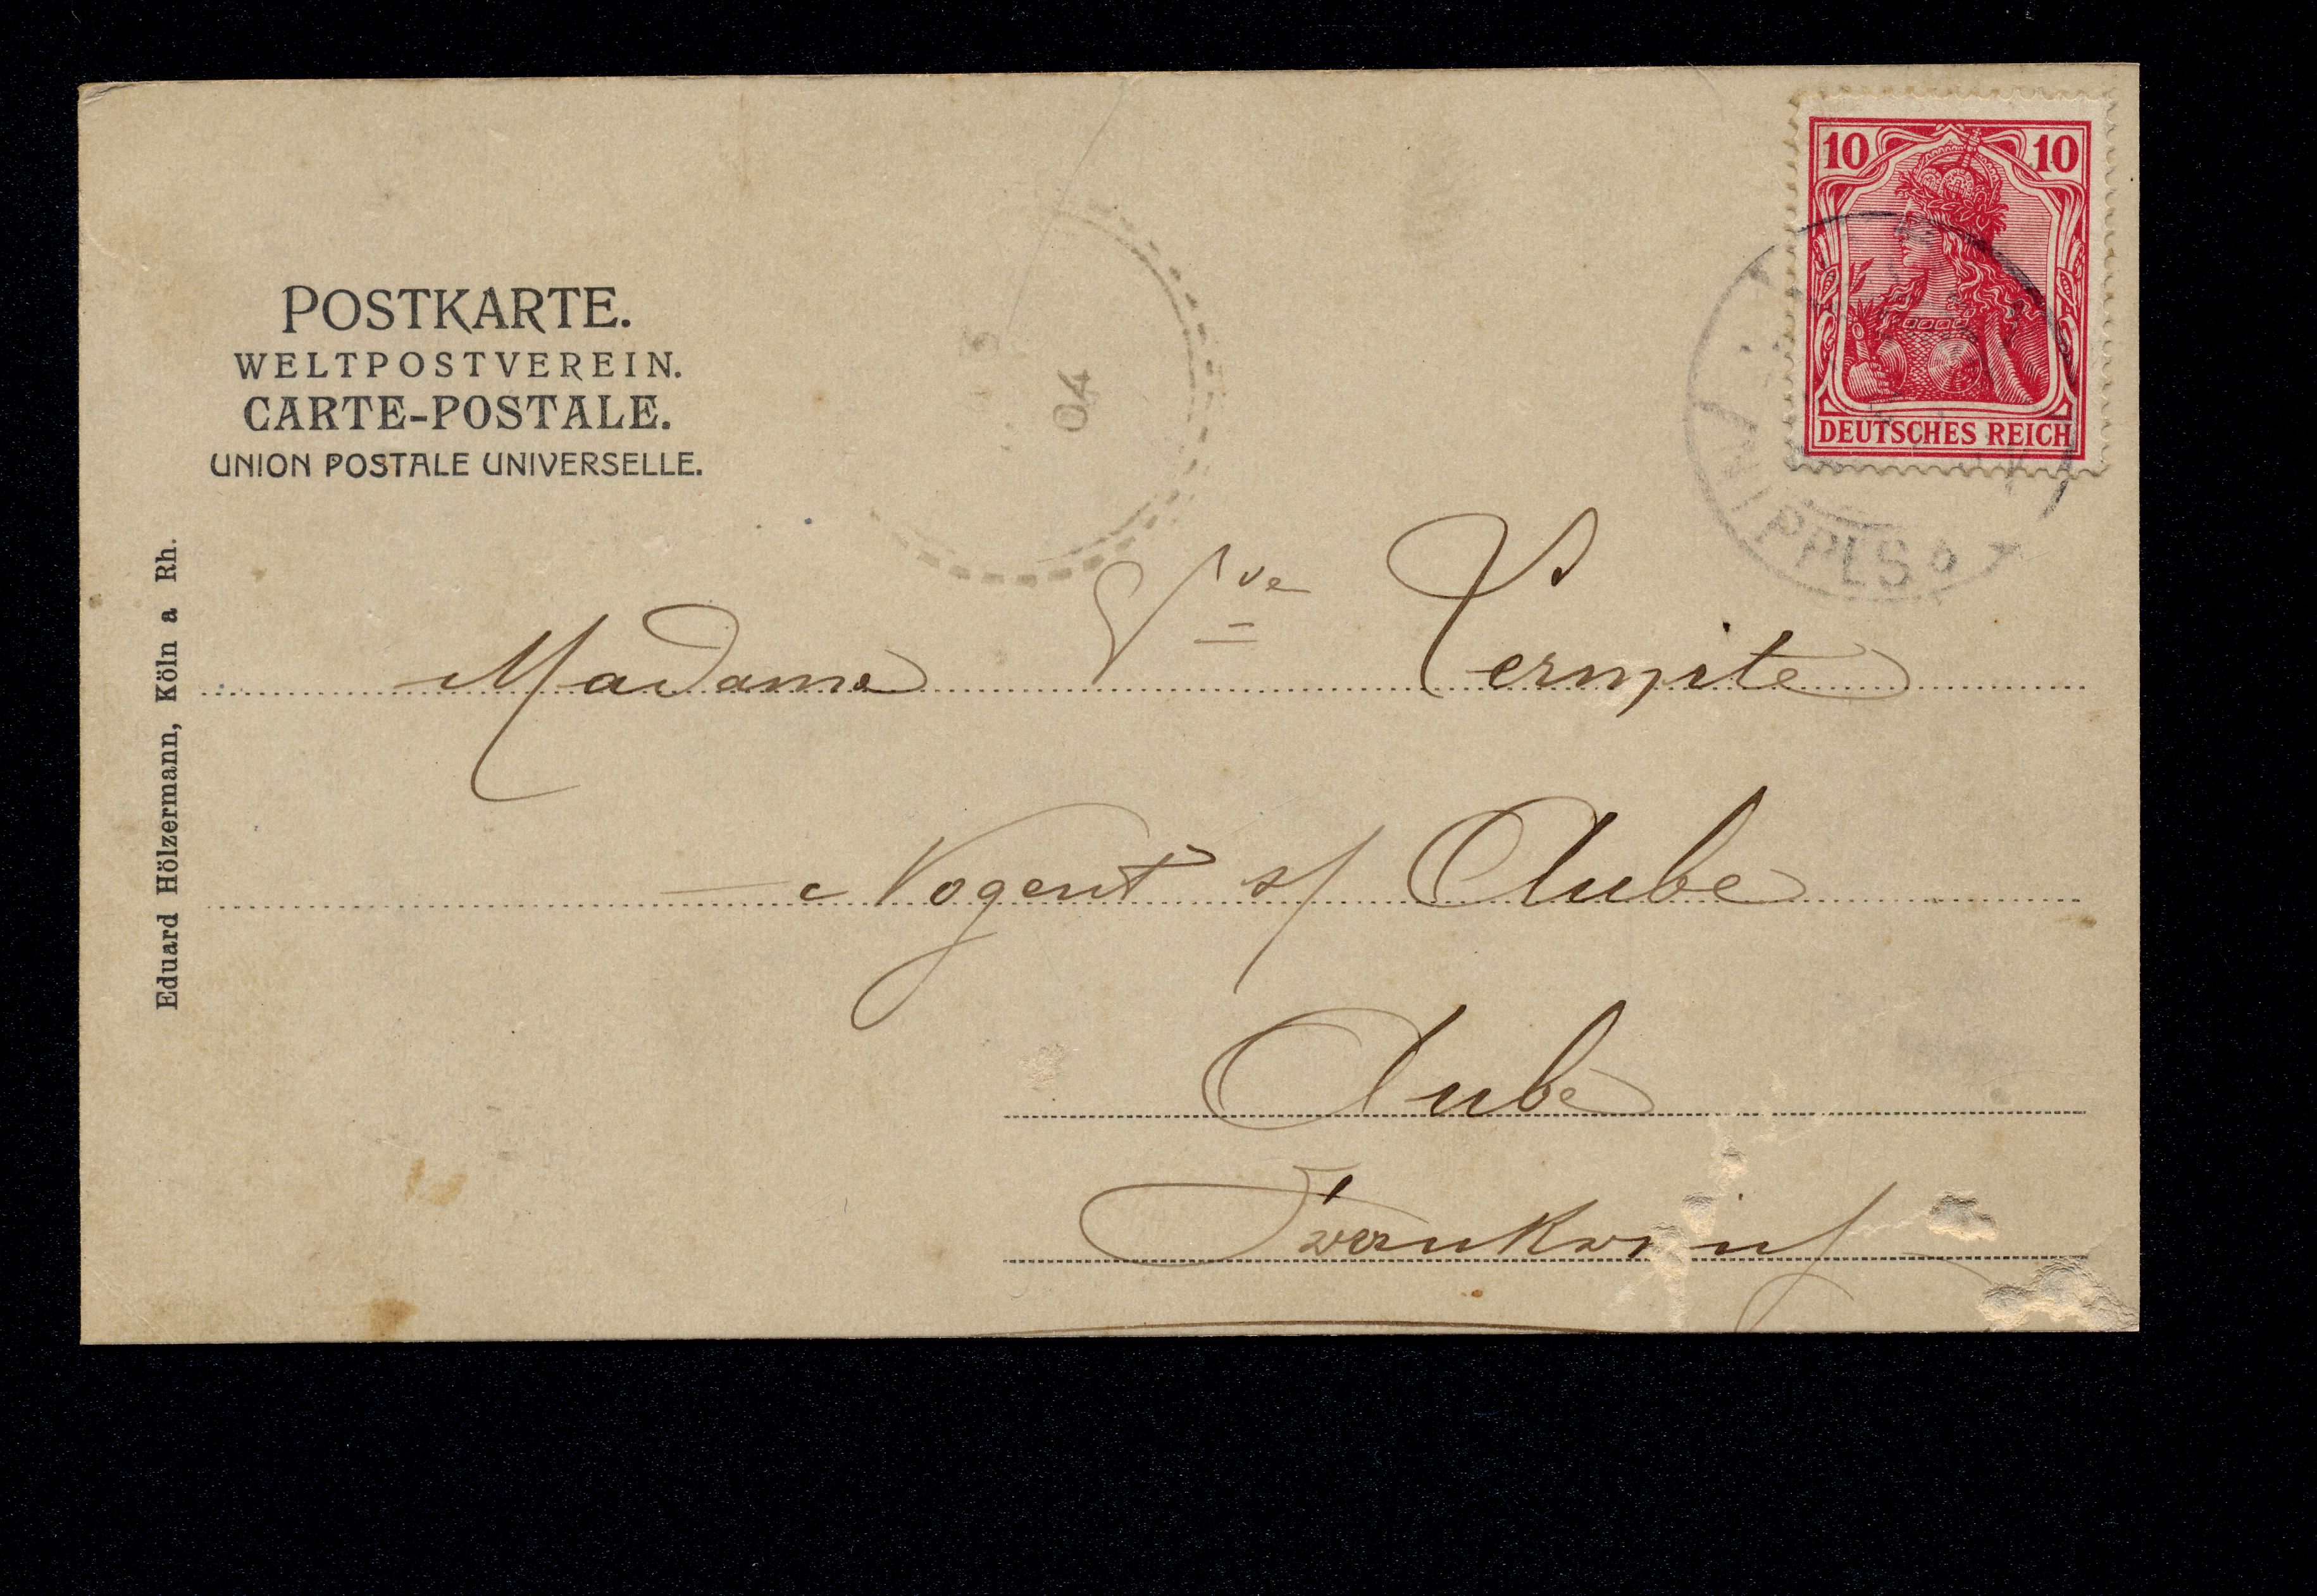 POSTKARTE.
WELTPOSTVEREIN.
CARTE-POSTALE.
UNION POSTALE UNIVERSELLE.
Eduard Hölzermann, Köln a Rh.
10 10
DEUTSCHES REICH
04
NIPPES
Madame Vve
Nogent s/ Aube
Aube
Frankreich